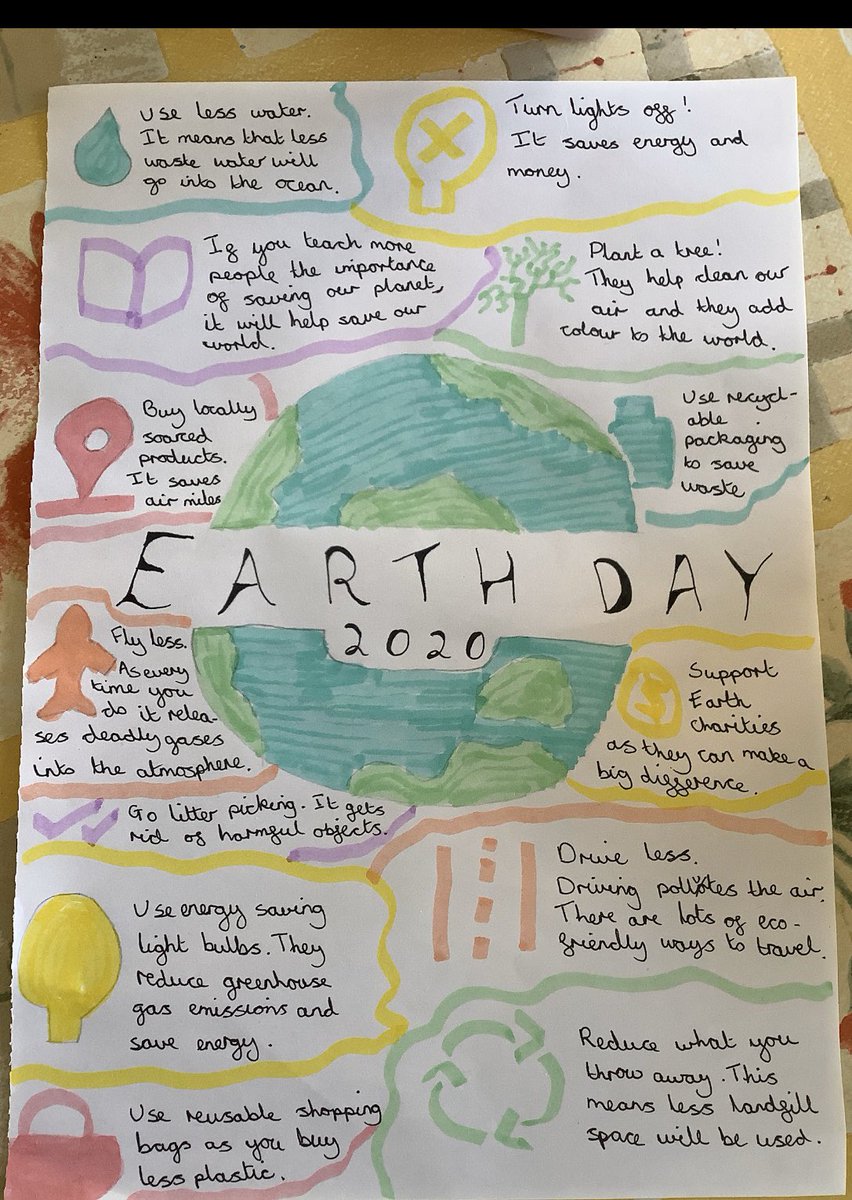 Use less water.
It means that less
waste water will
go into the ocean.
Turn lights off!
It saves energy and
money.
If you teach more
people the importance
of saving our planet,
it will help save our
world.
Plant a tree!
They help clean our
air and they add
colour to the world.
Buy locally
soarced
products.
It saves
air miles
Use recycl-
able
packaging
to save
waste
EARTH DAY
2020
Fly less.
As every
time you
do it relea-
ses deadly gases
into the atmosphere.
Support
Earth
charities
as they can make a
big difference.
Go litter picking. It gets
rid of harmful objects.
Drive less.
Driving pollutes the air.
There are lots of eco-
friendly ways to travel.
Use energy saving
light bulbs. They
reduce greenhouse
gas emissions and
save energy.
Reduce what you
throw away. This
means less landfill
space will be used.
Use reusable shopping
bags as you buy
less plastic.